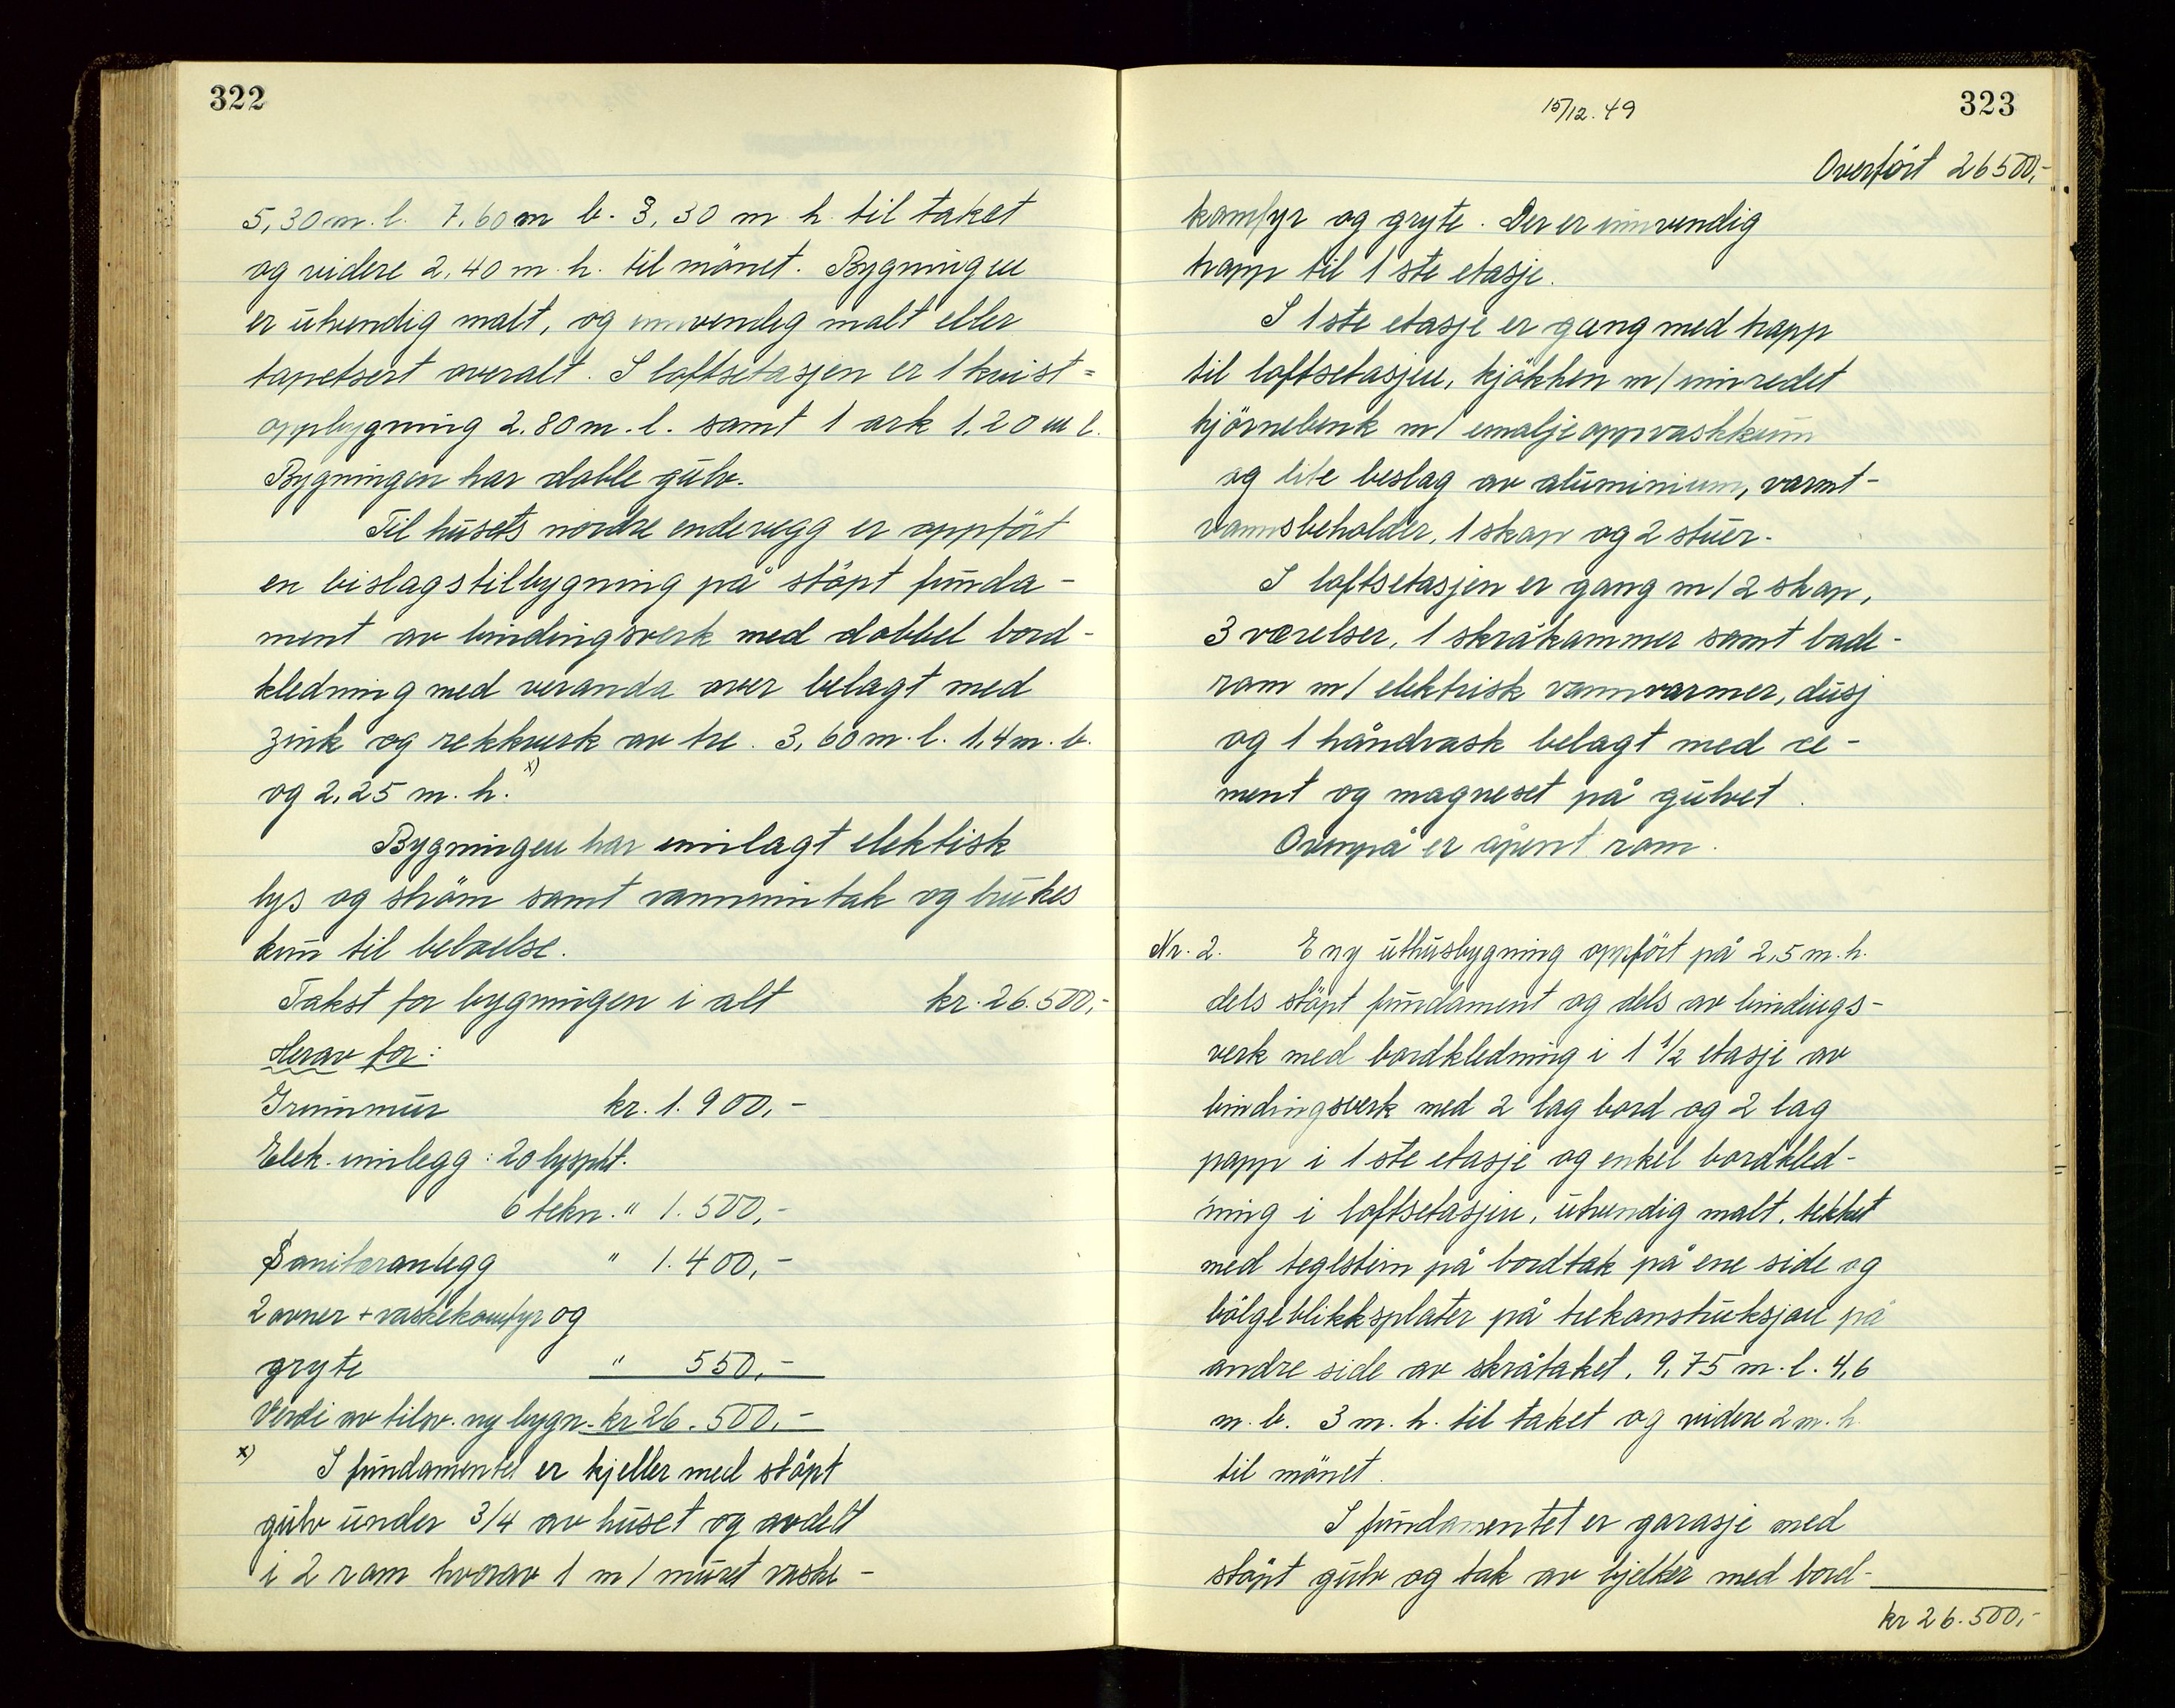 322
5,30 m. l. 7,60 m b. 3,30 m h. til taket
og videre 2,40 m. h. til mönet. Bygningen
er utvendig malt, og innvendig malt eller
tapetsert overalt. I loftsetasjen er 1 kvist=
oppbygning 2.80 m. l. samt 1 ark 1,20 m l.
Bygningen har doble gulv.
Til husets nordre endevegg er oppfört
en bislagstilbygning på stöpt funda-
ment av bindingsverk med dobbel bord-
kledning med veranda over belagt med
zink og rekkverk av tre. 3,60 m. l. 1,4 m. b.
og 2,25 m. h. x)
Bygningen har innlagt elektisk
lys og ström samt vanninntak og brukes
kun til beboelse.
Takst for bygningen i alt kr. 26.500,-
Herav for:
Grunnmur kr. 1.900,-
Elek. innlegg: 20 lyspkt.
6 tekn. " 1.500,-
Sanitæranlegg " 1.400,-
2 ovner + vaskekomfyr og
gryte " 550,-
Verdi av tilsv. ny bygn. kr 26.500,-
x) I fundamentet er kjeller med stöpt
gulv under 3/4 av huset og avdelt
i 2 rom hvorav 1 m/muret vaske-
323
15/12. 49
Overfört 26500,-
komfyr og gryte. Der er innvendig
trapp til 1 ste etasje.
I 1 ste etasje er gang med trapp
til loftsetasjen, kjökken m/innredet
hjörnebenk m/emaljeoppvaskkum
og lite beslag av aluminium, varmt-
vannsbeholder, 1 skap og 2 stuer.
I loftsetasjen er gang m/2 skap,
3 værelser, 1 skråkammer samt bade-
rom m/elektrisk vannvarmer, dusj
og 1 håndvask belagt med ce-
ment og magneset på gulvet.
Ovenpå er åpent rom.
Nr. 2. E ny uthusbygning oppfört på 2,5 m. h.
dels stöpt fundament og dels av bindings-
verk med bordkledning i 1 1/2 etasje av
bindingsverk med 2 lag bord og 2 lag
papp i 1 ste etasje og enkel bordkled-
ning i loftsetasjen, utvendig malt, tekket
med teglstein på bordtak på ene side og
bölgeblikksplater på trekonstruksjon på
andre side av skråtaket. 9,75 m. l. 4,6
m. b. 3 m. h. til taket og videre 2 m. h.
til mönet.
I fundamentet er garasje med
stöpt gulv og tak av bjelker med bord-
kr 26.500,-